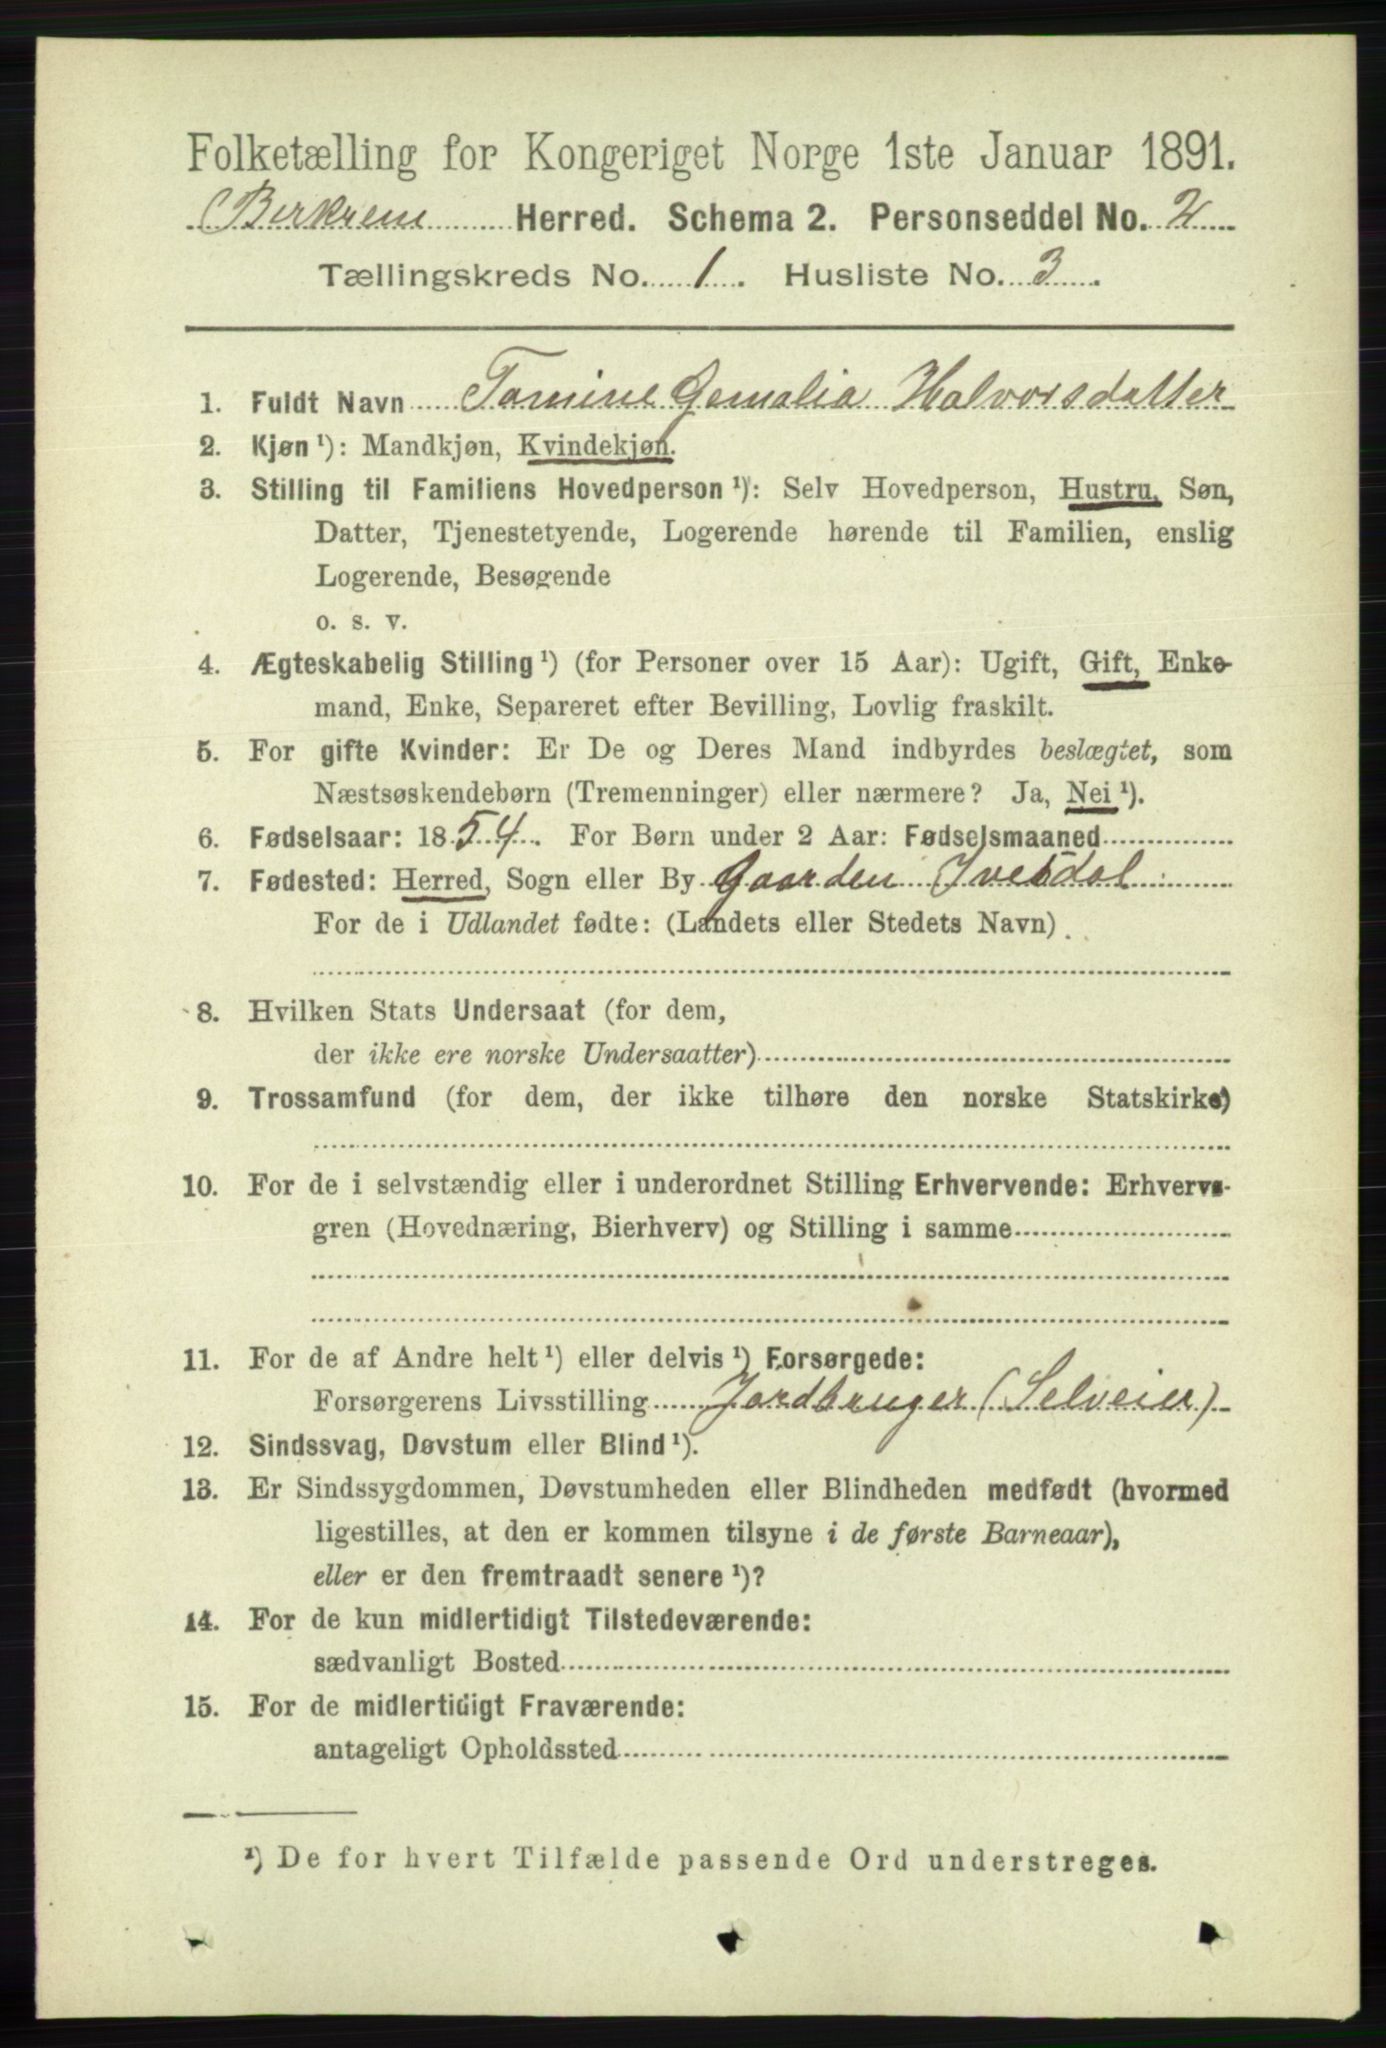 Folketælling for Kongeriget Norge 1ste Januar 1891.
Birkrem Herred. Schema 2. Personseddel No. 2
Tællingskreds No. 1. Husliste No. 3.
1. Fuldt Navn Tomine Gemalia Halvorsdatter
2. Kjøn ¹): Mandkjøn, Kvindekjøn.
3. Stilling til Familiens Hovedperson ¹): Selv Hovedperson, Hustru, Søn,
Datter, Tjenestetyende, Logerende hørende til Familien, enslig
Logerende, Besøgende
o. s. v.
4. Ægteskabelig Stilling ¹) (for Personer over 15 Aar): Ugift, Gift, Enke-
mand, Enke, Separeret efter Bevilling, Lovlig fraskilt.
5. For gifte Kvinder: Er De og Deres Mand indbyrdes beslægtet, som
Næstsøskendebørn (Tremenninger) eller nærmere? Ja, Nei ¹).
6. Fødselsaar: 1854. For Børn under 2 Aar: Fødselsmaaned
7. Fødested: Herred, Sogn eller By Gaarden Ivesdal
For de i Udlandet fødte: (Landets eller Stedets Navn)
8. Hvilken Stats Undersaat (for dem,
der ikke ere norske Undersaatter)
9. Trossamfund (for dem, der ikke tilhøre den norske Statskirke)
10. For de i selvstændig eller i underordnet Stilling Erhvervende: Erhvervs-
gren (Hovednæring, Bierhverv) og Stilling i samme
11. For de af Andre helt ¹) eller delvis ¹) Forsørgede:
Forsørgerens Livsstilling Jordbruger (Selveier)
12. Sindssvag, Døvstum eller Blind ¹).
13. Er Sindssygdommen, Døvstumheden eller Blindheden medfødt (hvormed
ligestilles, at den er kommen tilsyne i de første Barneaar),
eller er den fremtraadt senere ¹)?
14. For de kun midlertidigt Tilstedeværende:
sædvanligt Bosted
15. For de midlertidigt Fraværende:
antageligt Opholdssted
¹) De for hvert Tilfælde passende Ord understreges.